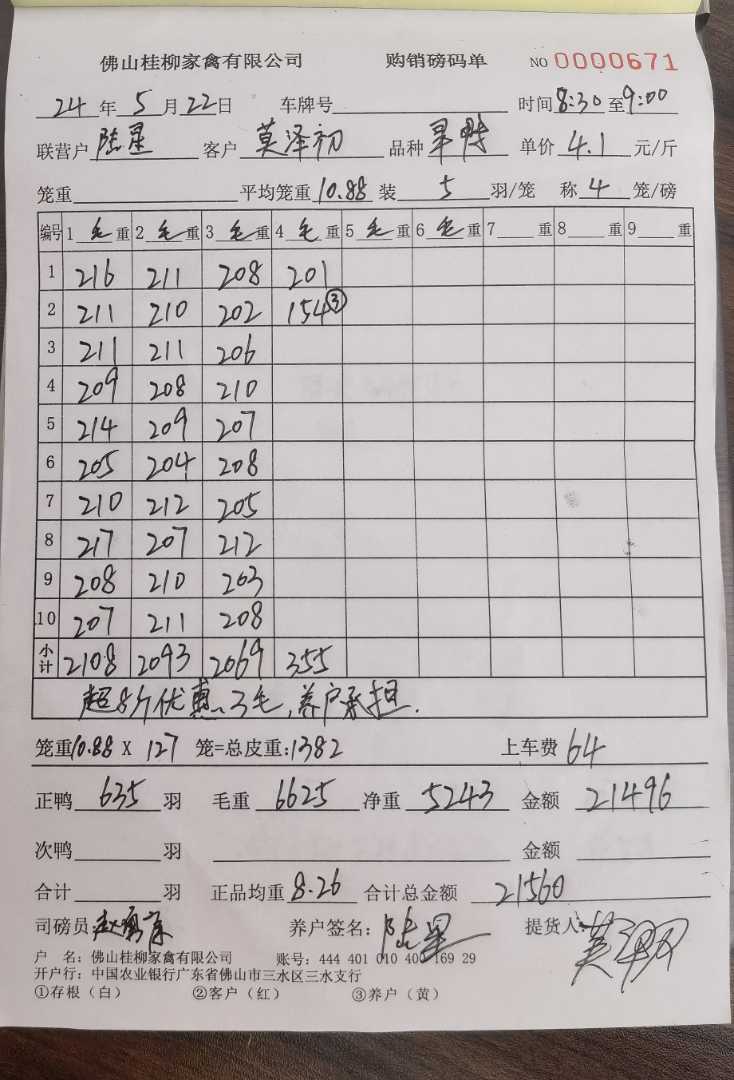 佛山桂柳家禽有限公司 购销磅码单 NO 0000671
24 年 5 月 22 日 车牌号 时间 8:30 至 9:00
联营户 陆星 客户 莫泽初 品种 单价 4.1 元/斤
笼重 平均笼重 10.88 装 5 羽/笼 称 4 笼/磅
编号 1 毛 重 2 毛 重 3 毛 重 4 毛 重 5 毛 重 6 毛 重 7 重 8 重 9 重
1 216 211 208 201
2 211 210 202 154③
3 211 211 206
4 209 208 210
5 214 209 207
6 205 204 208
7 210 212 205
8 217 207 212
9 208 210 203
10 207 211 208
小计 2108 2093 2069 355
超8斤优惠、3毛,养户承担.
笼重10.88 X 127 笼=总皮重:1382 上车费 64
正鸭 635 羽 毛重 6625 净重 5243 金额 21496
次鸭 羽 金额
合计 羽 正品均重 8.26 合计总金额 21560
司磅员: 养户签名: 陆星 提货人:
户 名: 佛山桂柳家禽有限公司 账号: 444 401 010 400 169 29
开户行: 中国农业银行广东省佛山市三水区三水支行
①存根（白） ②客户（红） ③养户（黄）